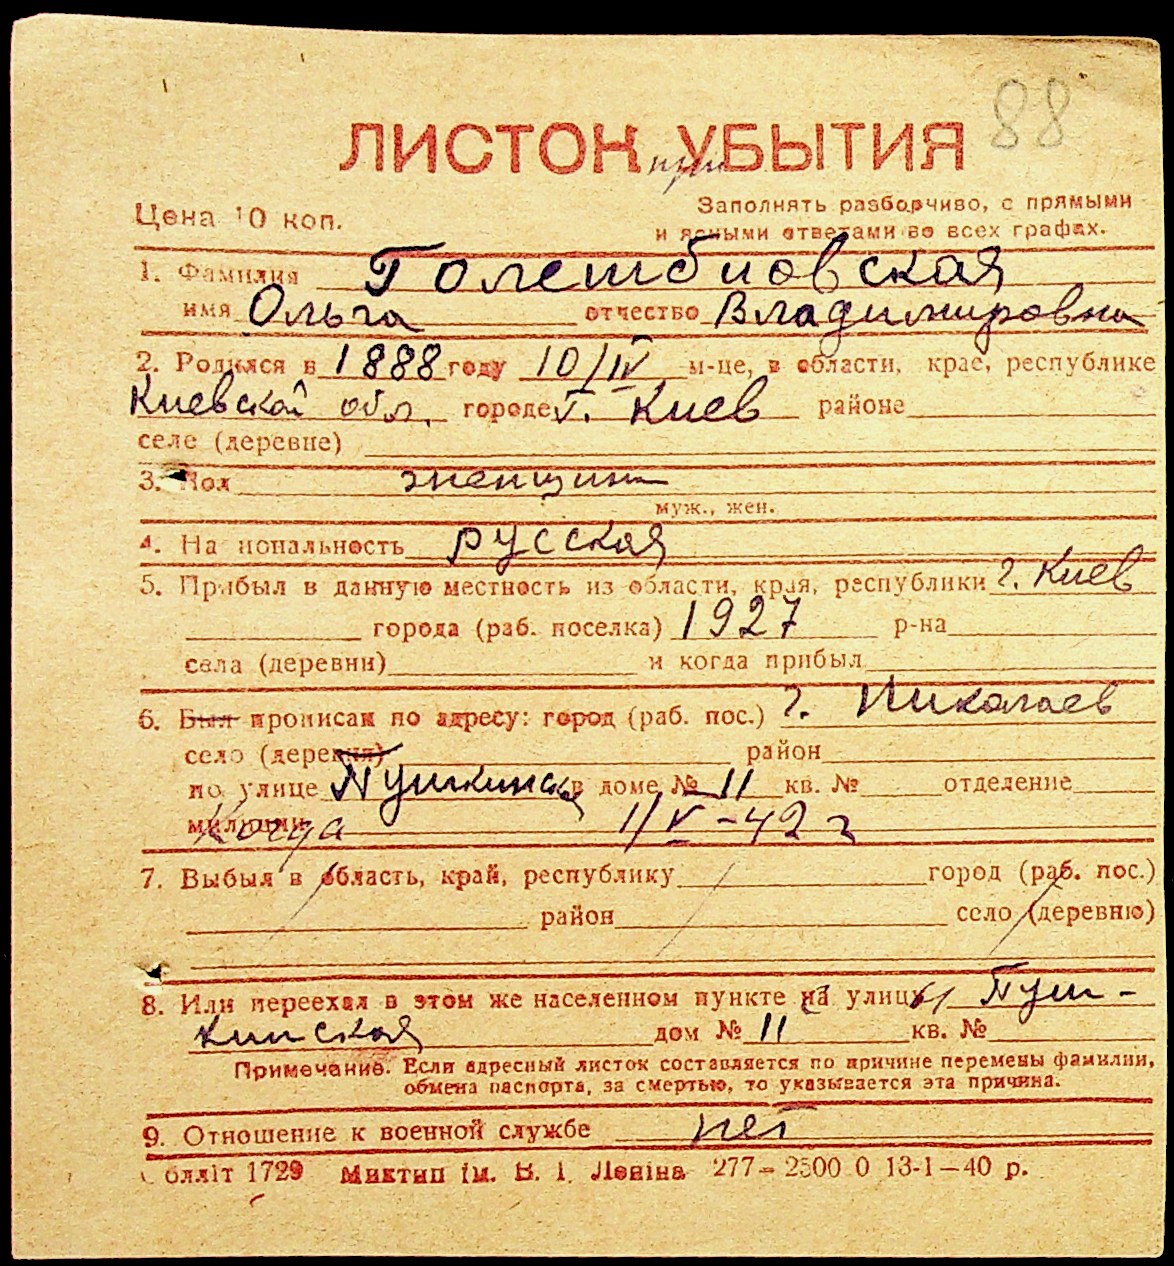 88
ЛИСТОК УБЫТИЯ
при
Цена 10 коп.
Заполнять разборчиво, с прямыми
и ясными ответами во всех графах.
1. Фамилия Голембиовская
имя Ольга отчество Владимировна
2. Родился в 1888 году 10/IV м-це, в области, крае, республике
Киевской обл. городе г. Киев районе
селе (деревне)
3. Пол женщина
муж., жен.
4. Национальность русская
5. Прибыл в данную местность из области, края, республики г. Киев
города (раб. поселка) 1927 р-на
села (деревни) и когда прибыл
6. Был прописан по адресу: город (раб. пос.) г. Николаев
село (деревня) район
по улице Пушкинск в доме № 11 кв. № отделение
милиции Когда 1/V-42 г
7. Выбыл в область, край, республику город (раб. пос.)
район село (деревню)
8. Или переехал в этом же населенном пункте на улицу Пуш-
кинская дом № 11 кв. №
Примечание. Если адресный листок составляется по причине перемены фамилии,
обмена паспорта, за смертью, то указывается эта причина.
9. Отношение к военной службе нет
Обллiт 1729 Миктип iм. В. I. Ленiна 277–2500 0 13-1–40 р.